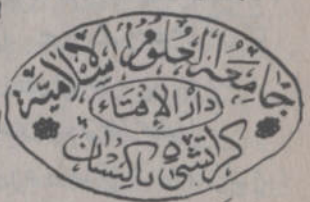 جامعة العلوم الاسلامية
دار الإفتاء
كراتشي ٥ باكستان